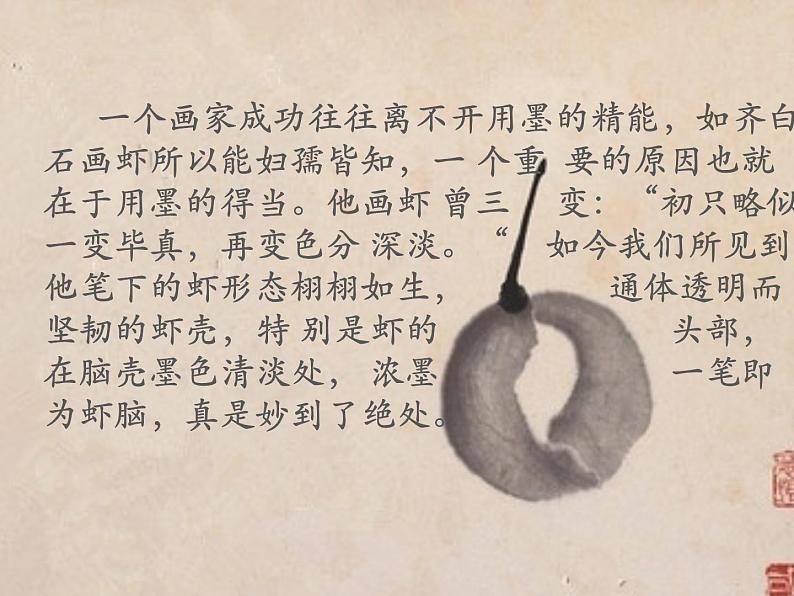 一个画家成功往往离不开用墨的精能，如齐白
石画虾所以能妇孺皆知，一 个重 要的原因也就
在于用墨的得当。他画虾 曾三 变：“初只略似
一变毕真，再变色分 深淡。“ 如今我们所见到
他笔下的虾形态栩栩如生， 通体透明而
坚韧的虾壳，特 别是虾的 头部，
在脑壳墨色清淡处， 浓墨 一笔即
为虾脑，真是妙到了绝处。